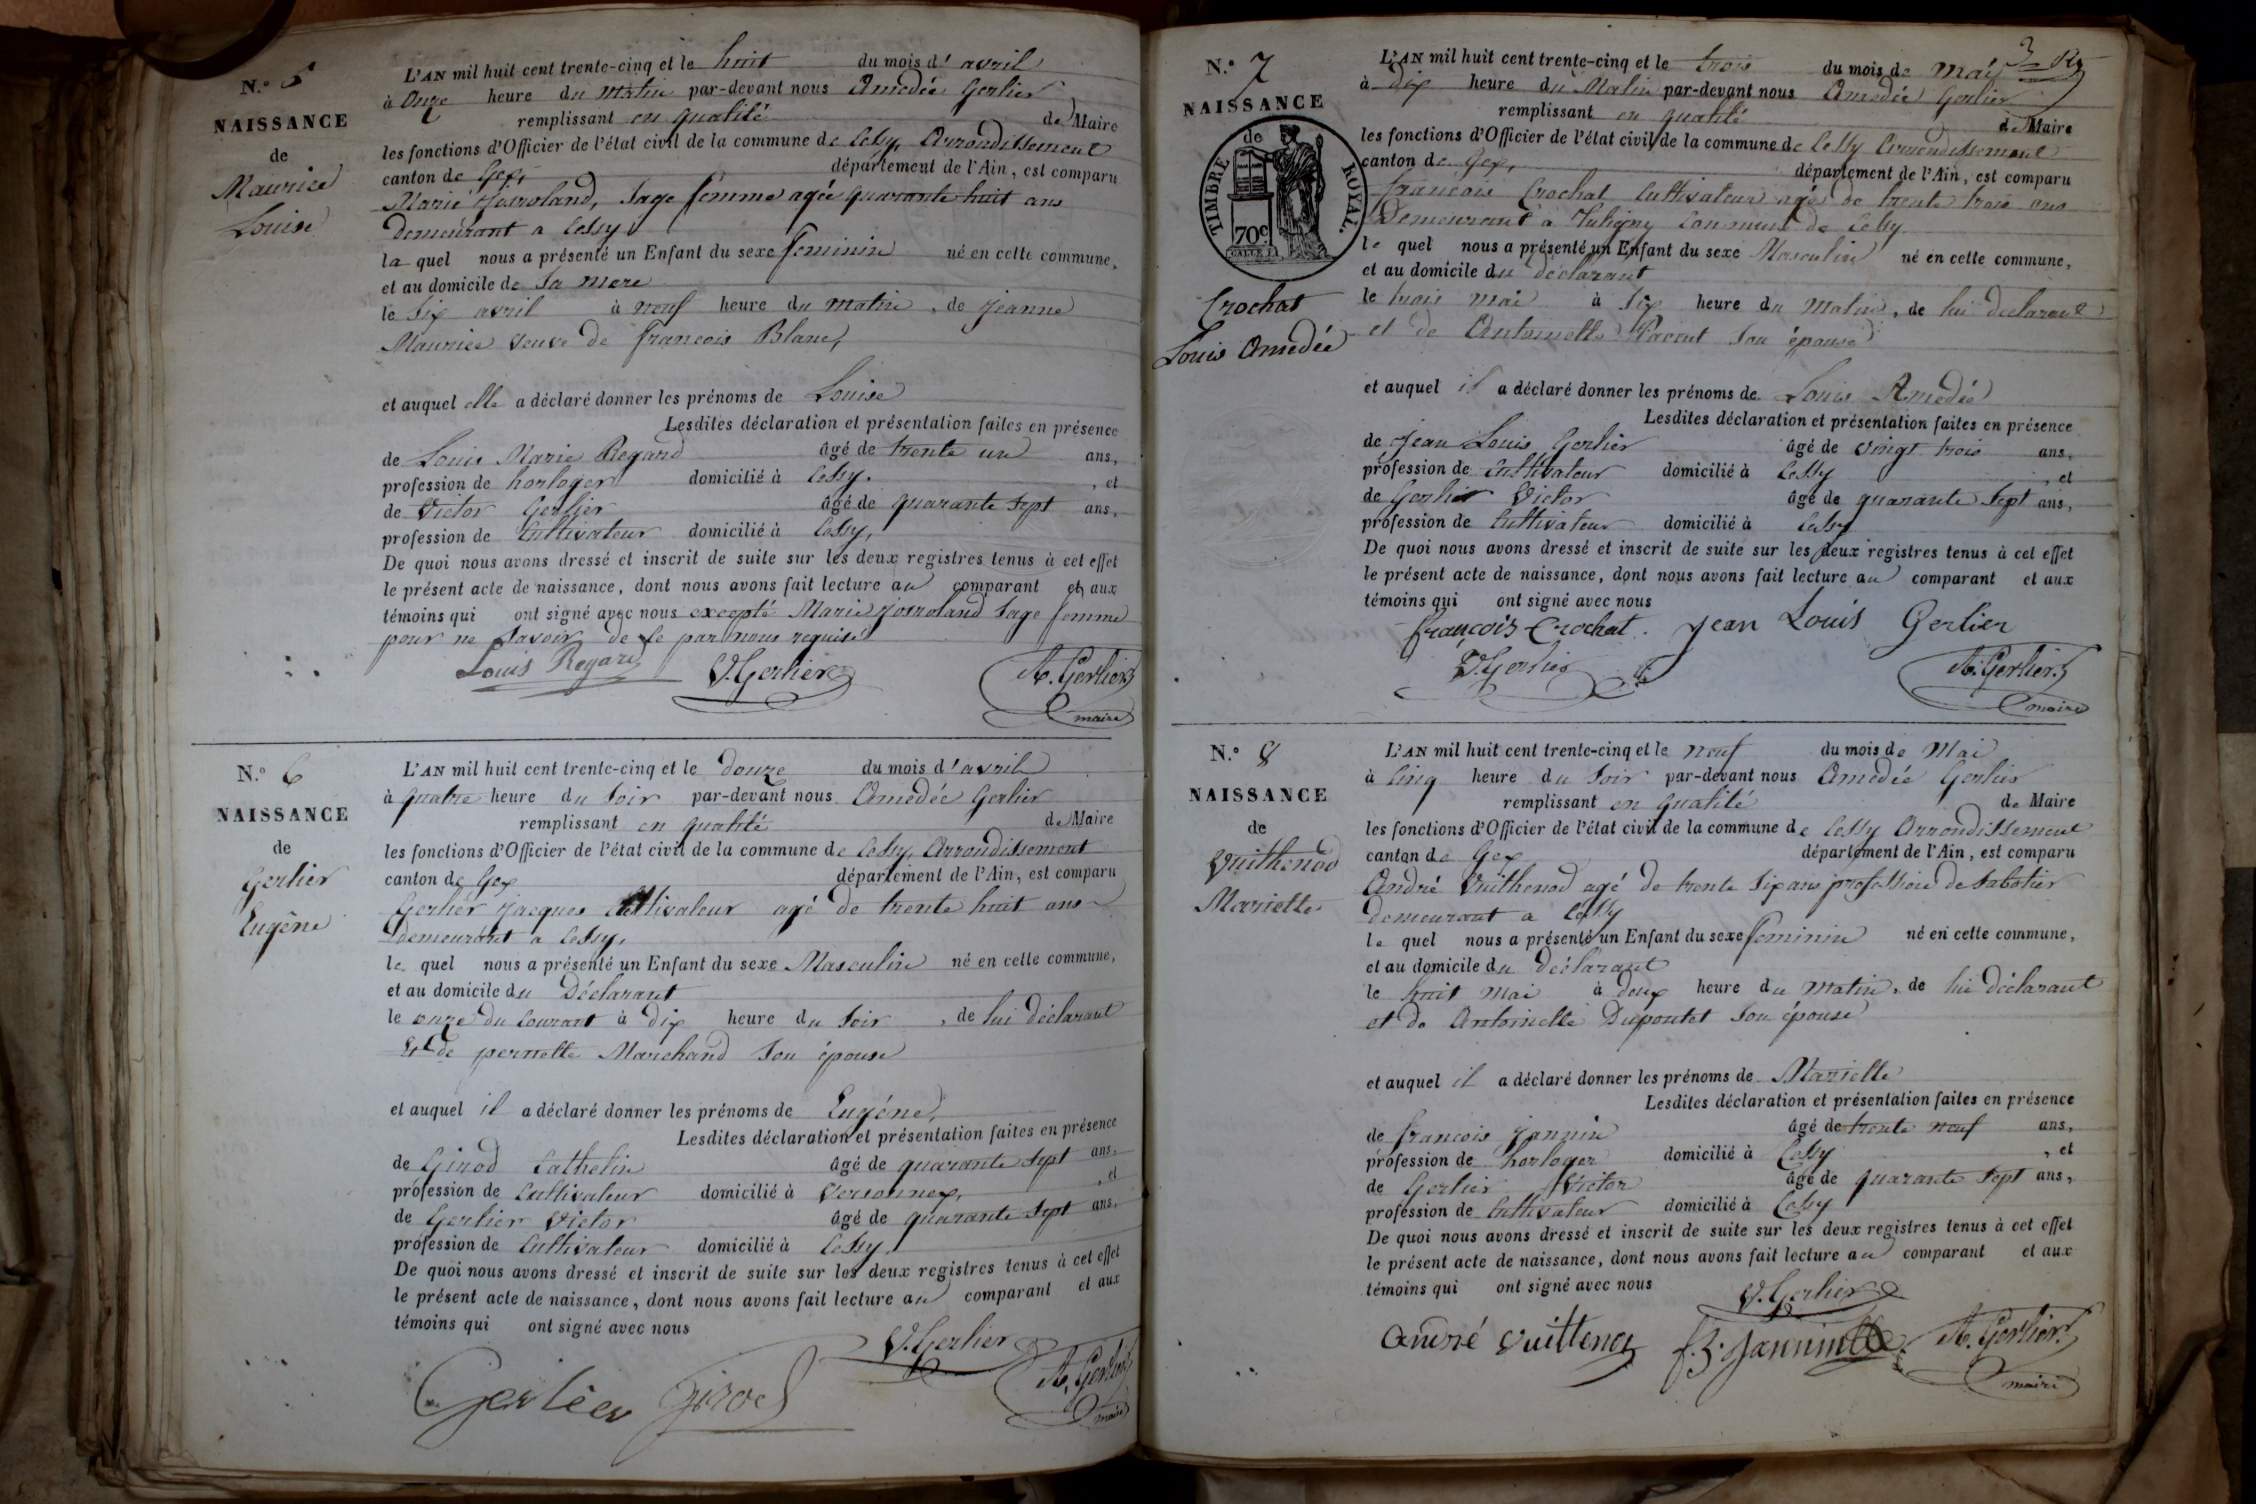 N.° 5
NAISSANCE
de
Maurice
Louise
L'AN mil huit cent trente-cinq et le huit du mois d' avril
à onze heure du matin par-devant nous Amedée Gerlier
remplissant en qualité de Maire
les fonctions d'Officier de l'état civil de la commune de Cessy, Arrondissement
canton de Gex, département de l'Ain, est comparu
Marie Josroland, Sage femme agée quarante huit ans
demeurant a Cessy
la quel nous a présenté un Enfant du sexe feminin né en cette commune,
et au domicile de Sa mere
le Six avril à neuf heure du matin, de jeanne
Maurice veuve de francois Blanc,
et auquel elle a déclaré donner les prénoms de Louise
Lesdites déclaration et présentation faites en présence
de Louis Marie Regard âgé de trente un ans,
profession de horloger domicilié à Cessy. , et
de Victor Gerlier âgé de quarante Sept ans,
profession de Cultivateur domicilié à Cessy,
De quoi nous avons dressé et inscrit de suite sur les deux registres tenus à cet effet
le présent acte de naissance, dont nous avons fait lecture au comparant et aux
témoins qui ont signé avec nous excepté Marie Josroland Sage femme
pour ne Savoir de ce par nous requise
Louis Regard V. Gerlier A. Gerlier
maire
N.° 6
NAISSANCE
de
Gerlier
Eugêne
L'AN mil huit cent trente-cinq et le douze du mois d' avril
à quatre heure du Soir par-devant nous Amedée Gerlier
remplissant en qualité de Maire
les fonctions d'Officier de l'état civil de la commune de Cessy, Arrondissement
canton de Gex département de l'Ain, est comparu
Gerlier jacques Cultivateur agé de trente huit ans
demeurant a Cessy,
le quel nous a présenté un Enfant du sexe Masculin né en cette commune,
et au domicile du Déclarant
le onze du Courant à dix heure du Soir , de lui déclarant
et de pernette Marchand Son épouse
et auquel il a déclaré donner les prénoms de Eugéne,
Lesdites déclaration et présentation faites en présence
de Girod Cathelin âgé de quarante Sept ans,
profession de Cultivateur domicilié à Versonnex, , et
de Gerlier Victor âgé de quarante Sept ans,
profession de Cultivateur domicilié à Cessy,
De quoi nous avons dressé et inscrit de suite sur les deux registres tenus à cet effet
le présent acte de naissance, dont nous avons fait lecture au comparant et aux
témoins qui ont signé avec nous
V. Gerlier
Gerlier Girod A. Gerlier
maire
N.° 7
NAISSANCE
de
TIMBRE ROYAL.
70c
Crochat
Louis Amedée
L'AN mil huit cent trente-cinq et le trois du mois de Mai
à dix heure du Matin par-devant nous Amedée Gerlier
remplissant en qualité de Maire
les fonctions d'Officier de l'état civil de la commune de Cessy Arrondissement
canton de Gex, département de l'Ain, est comparu
francois Crochat Cultivateur agé de trente trois ans
Demeurant a Tutigny Commune de Cessy
le quel nous a présenté un Enfant du sexe Masculin né en cette commune,
et au domicile du déclarant
le trois mai à Six heure du Matin, de lui declarant
et de Antoinette Son épouse
et auquel il a déclaré donner les prénoms de Louis Amedée
Lesdites déclaration et présentation faites en présence
de Jean Louis Gerlier âgé de vingt trois ans,
profession de Cultivateur domicilié à Cessy , et
de Gerlier Victor âgé de quarante Sept ans,
profession de Cultivateur domicilié à Cessy
De quoi nous avons dressé et inscrit de suite sur les deux registres tenus à cet effet
le présent acte de naissance, dont nous avons fait lecture au comparant et aux
témoins qui ont signé avec nous
françois Crochat. Jean Louis Gerlier
V. Gerlier A. Gerlier.
maire
N.° 8
NAISSANCE
de
Vuithenod
Mariette
L'AN mil huit cent trente-cinq et le neuf du mois de Mai
à Cinq heure du Soir par-devant nous Amedée Gerlier
remplissant en qualité de Maire
les fonctions d'Officier de l'état civil de la commune de Cessy Arrondissement
canton de Gex département de l'Ain, est comparu
André Vuithenod agé de trente Six ans profession de Sabotier
demeurant a Cessy
le quel nous a présenté un Enfant du sexe feminin né en cette commune,
et au domicile du déclarant
le huit mai à deux heure du matin, de lui déclarant
et de Antoinette Dupontet Son épouse
et auquel il a déclaré donner les prénoms de Mariette
Lesdites déclaration et présentation faites en présence
de francois Jannin âgé de trente neuf ans,
profession de horloger domicilié à Cessy , et
de Gerlier Victor âgé de quarante Sept ans,
profession de Cultivateur domicilié à Cessy
De quoi nous avons dressé et inscrit de suite sur les deux registres tenus à cet effet
le présent acte de naissance, dont nous avons fait lecture au comparant et aux
témoins qui ont signé avec nous
V. Gerlier
André Vuittenod A. Gerlier.
maire